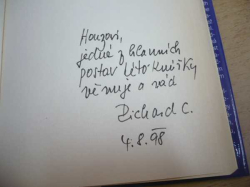 Honzovi,
jedné z hlavních
postav této knížky
věnuje a rád
Richard C.
4. 8. 98